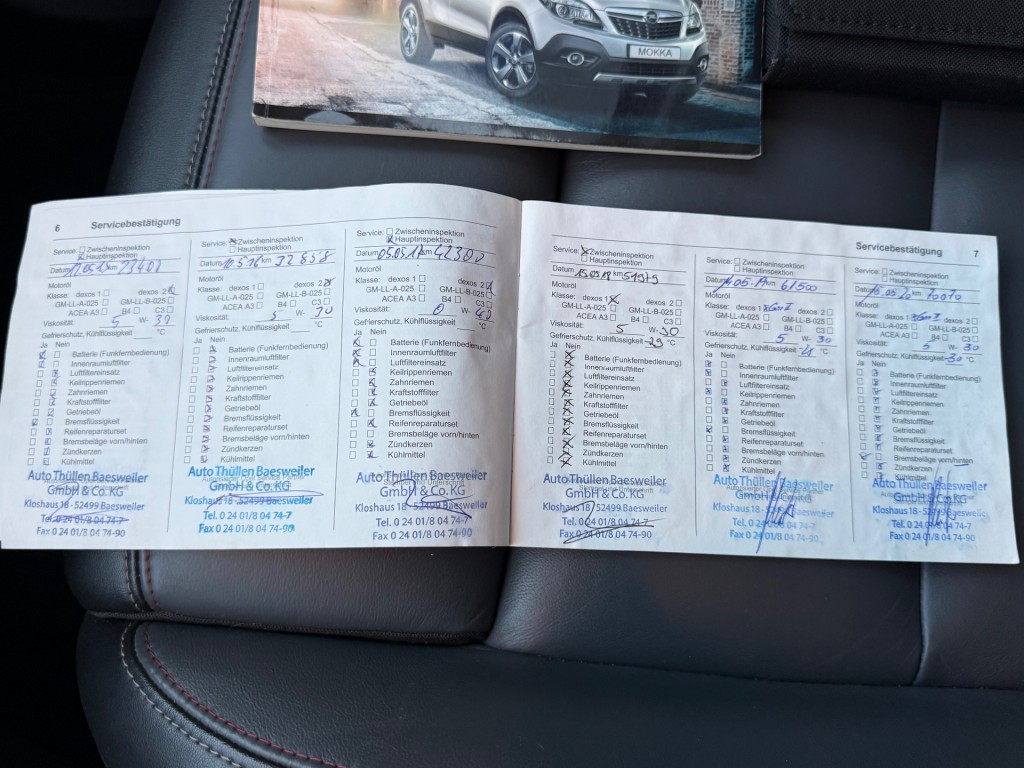 MOKKA
6 Servicebestätigung
Service: Zwischeninspektion
Hauptinspektion
Datum km 23402
Motoröl
Klasse: dexos 1 dexos 2
GM-LL-A-025 GM-LL-B-025
ACEA A3 B4 C3
Viskosität: 5 W-
Gefrierschutz, Kühlflüssigkeit °C
Ja Nein
Batterie (Funkfernbedienung)
Innenraumluftfilter
Luftfiltereinsatz
Keilrippenriemen
Zahnriemen
Kraftstofffilter
Getriebeöl
Bremsflüssigkeit
Reifenreparaturset
Bremsbeläge vorn/hinten
Zündkerzen
Kühlmittel
Auto Thüllen Baesweiler
GmbH & Co. KG
Kloshaus 18 - 52499 Baesweiler
Tel. 0 24 01/8 04 74-7
Fax 0 24 01/8 04 74-90
Service: Zwischeninspektion
Hauptinspektion
Datum 10.5.16 km 32858
Motoröl
Klasse: dexos 1 dexos 2
GM-LL-A-025 GM-LL-B-025
ACEA A3 B4 C3
Viskosität: 5 W- 30
Gefrierschutz, Kühlflüssigkeit °C
Ja Nein
Batterie (Funkfernbedienung)
Innenraumluftfilter
Luftfiltereinsatz
Keilrippenriemen
Zahnriemen
Kraftstofffilter
Getriebeöl
Bremsflüssigkeit
Reifenreparaturset
Bremsbeläge vorn/hinten
Zündkerzen
Kühlmittel
Auto Thüllen Baesweiler
GmbH & Co. KG
Kloshaus 18 - 52499 Baesweiler
Tel. 0 24 01/8 04 74-7
Fax 0 24 01/8 04 74-90
Service: Zwischeninspektion
Hauptinspektion
Datum 05.05.17 km 42300
Motoröl
Klasse: dexos 1 dexos 2
GM-LL-A-025 GM-LL-B-025
ACEA A3 B4 C3
Viskosität: 0 W-
Gefrierschutz, Kühlflüssigkeit °C
Ja Nein
Batterie (Funkfernbedienung)
Innenraumluftfilter
Luftfiltereinsatz
Keilrippenriemen
Zahnriemen
Kraftstofffilter
Getriebeöl
Bremsflüssigkeit
Reifenreparaturset
Bremsbeläge vorn/hinten
Zündkerzen
Kühlmittel
Auto Thüllen Baesweiler
GmbH & Co. KG
Kloshaus 18 - 52499 Baesweiler
Tel. 0 24 01/8 04 74-7
Fax 0 24 01/8 04 74-90
Servicebestätigung 7
Service: Zwischeninspektion
Hauptinspektion
Datum 15.05.18 km 51979
Motoröl
Klasse: dexos 1 dexos 2
GM-LL-A-025 GM-LL-B-025
ACEA A3 B4 C3
Viskosität: 5 W- 30
Gefrierschutz, Kühlflüssigkeit -29 °C
Ja Nein
Batterie (Funkfernbedienung)
Innenraumluftfilter
Luftfiltereinsatz
Keilrippenriemen
Zahnriemen
Kraftstofffilter
Getriebeöl
Bremsflüssigkeit
Reifenreparaturset
Bremsbeläge vorn/hinten
Zündkerzen
Kühlmittel
Auto Thüllen Baesweiler
GmbH & Co. KG
Kloshaus 18 / 52499 Baesweiler
Tel. 0 24 01/8 04 74-7
Fax 0 24 01/8 04 74-90
Service: Zwischeninspektion
Hauptinspektion
Datum km 61500
Motoröl
Klasse: dexos 1 dexos 2
GM-LL-A-025 GM-LL-B-025
ACEA A3 B4 C3
Viskosität: 5 W- 30
Gefrierschutz, Kühlflüssigkeit °C
Ja Nein
Batterie (Funkfernbedienung)
Innenraumluftfilter
Luftfiltereinsatz
Keilrippenriemen
Zahnriemen
Kraftstofffilter
Getriebeöl
Bremsflüssigkeit
Reifenreparaturset
Bremsbeläge vorn/hinten
Zündkerzen
Kühlmittel
Auto Thüllen Baesweiler
GmbH & Co. KG
Kloshaus 18 52499 Baesweiler
Tel. 0 24 01/8 04 74-7
Fax 0 24 01/8 04 74-90
Service: Zwischeninspektion
Hauptinspektion
Datum 15.05.20 km 70070
Motoröl
Klasse: dexos 1 dexos 2
GM-LL-A-025 GM-LL-B-025
ACEA A3 B4 C3
Viskosität: 5 W- 30
Gefrierschutz, Kühlflüssigkeit -30 °C
Ja Nein
Batterie (Funkfernbedienung)
Innenraumluftfilter
Luftfiltereinsatz
Keilrippenriemen
Zahnriemen
Kraftstofffilter
Getriebeöl
Bremsflüssigkeit
Reifenreparaturset
Bremsbeläge vorn/hinten
Zündkerzen
Kühlmittel
Auto Thüllen Baesweiler
GmbH & Co. KG
Kloshaus 18 - 52499 Baesweiler
Tel. 0 24 01/8 04 74-7
Fax 0 24 01/8 04 74-90